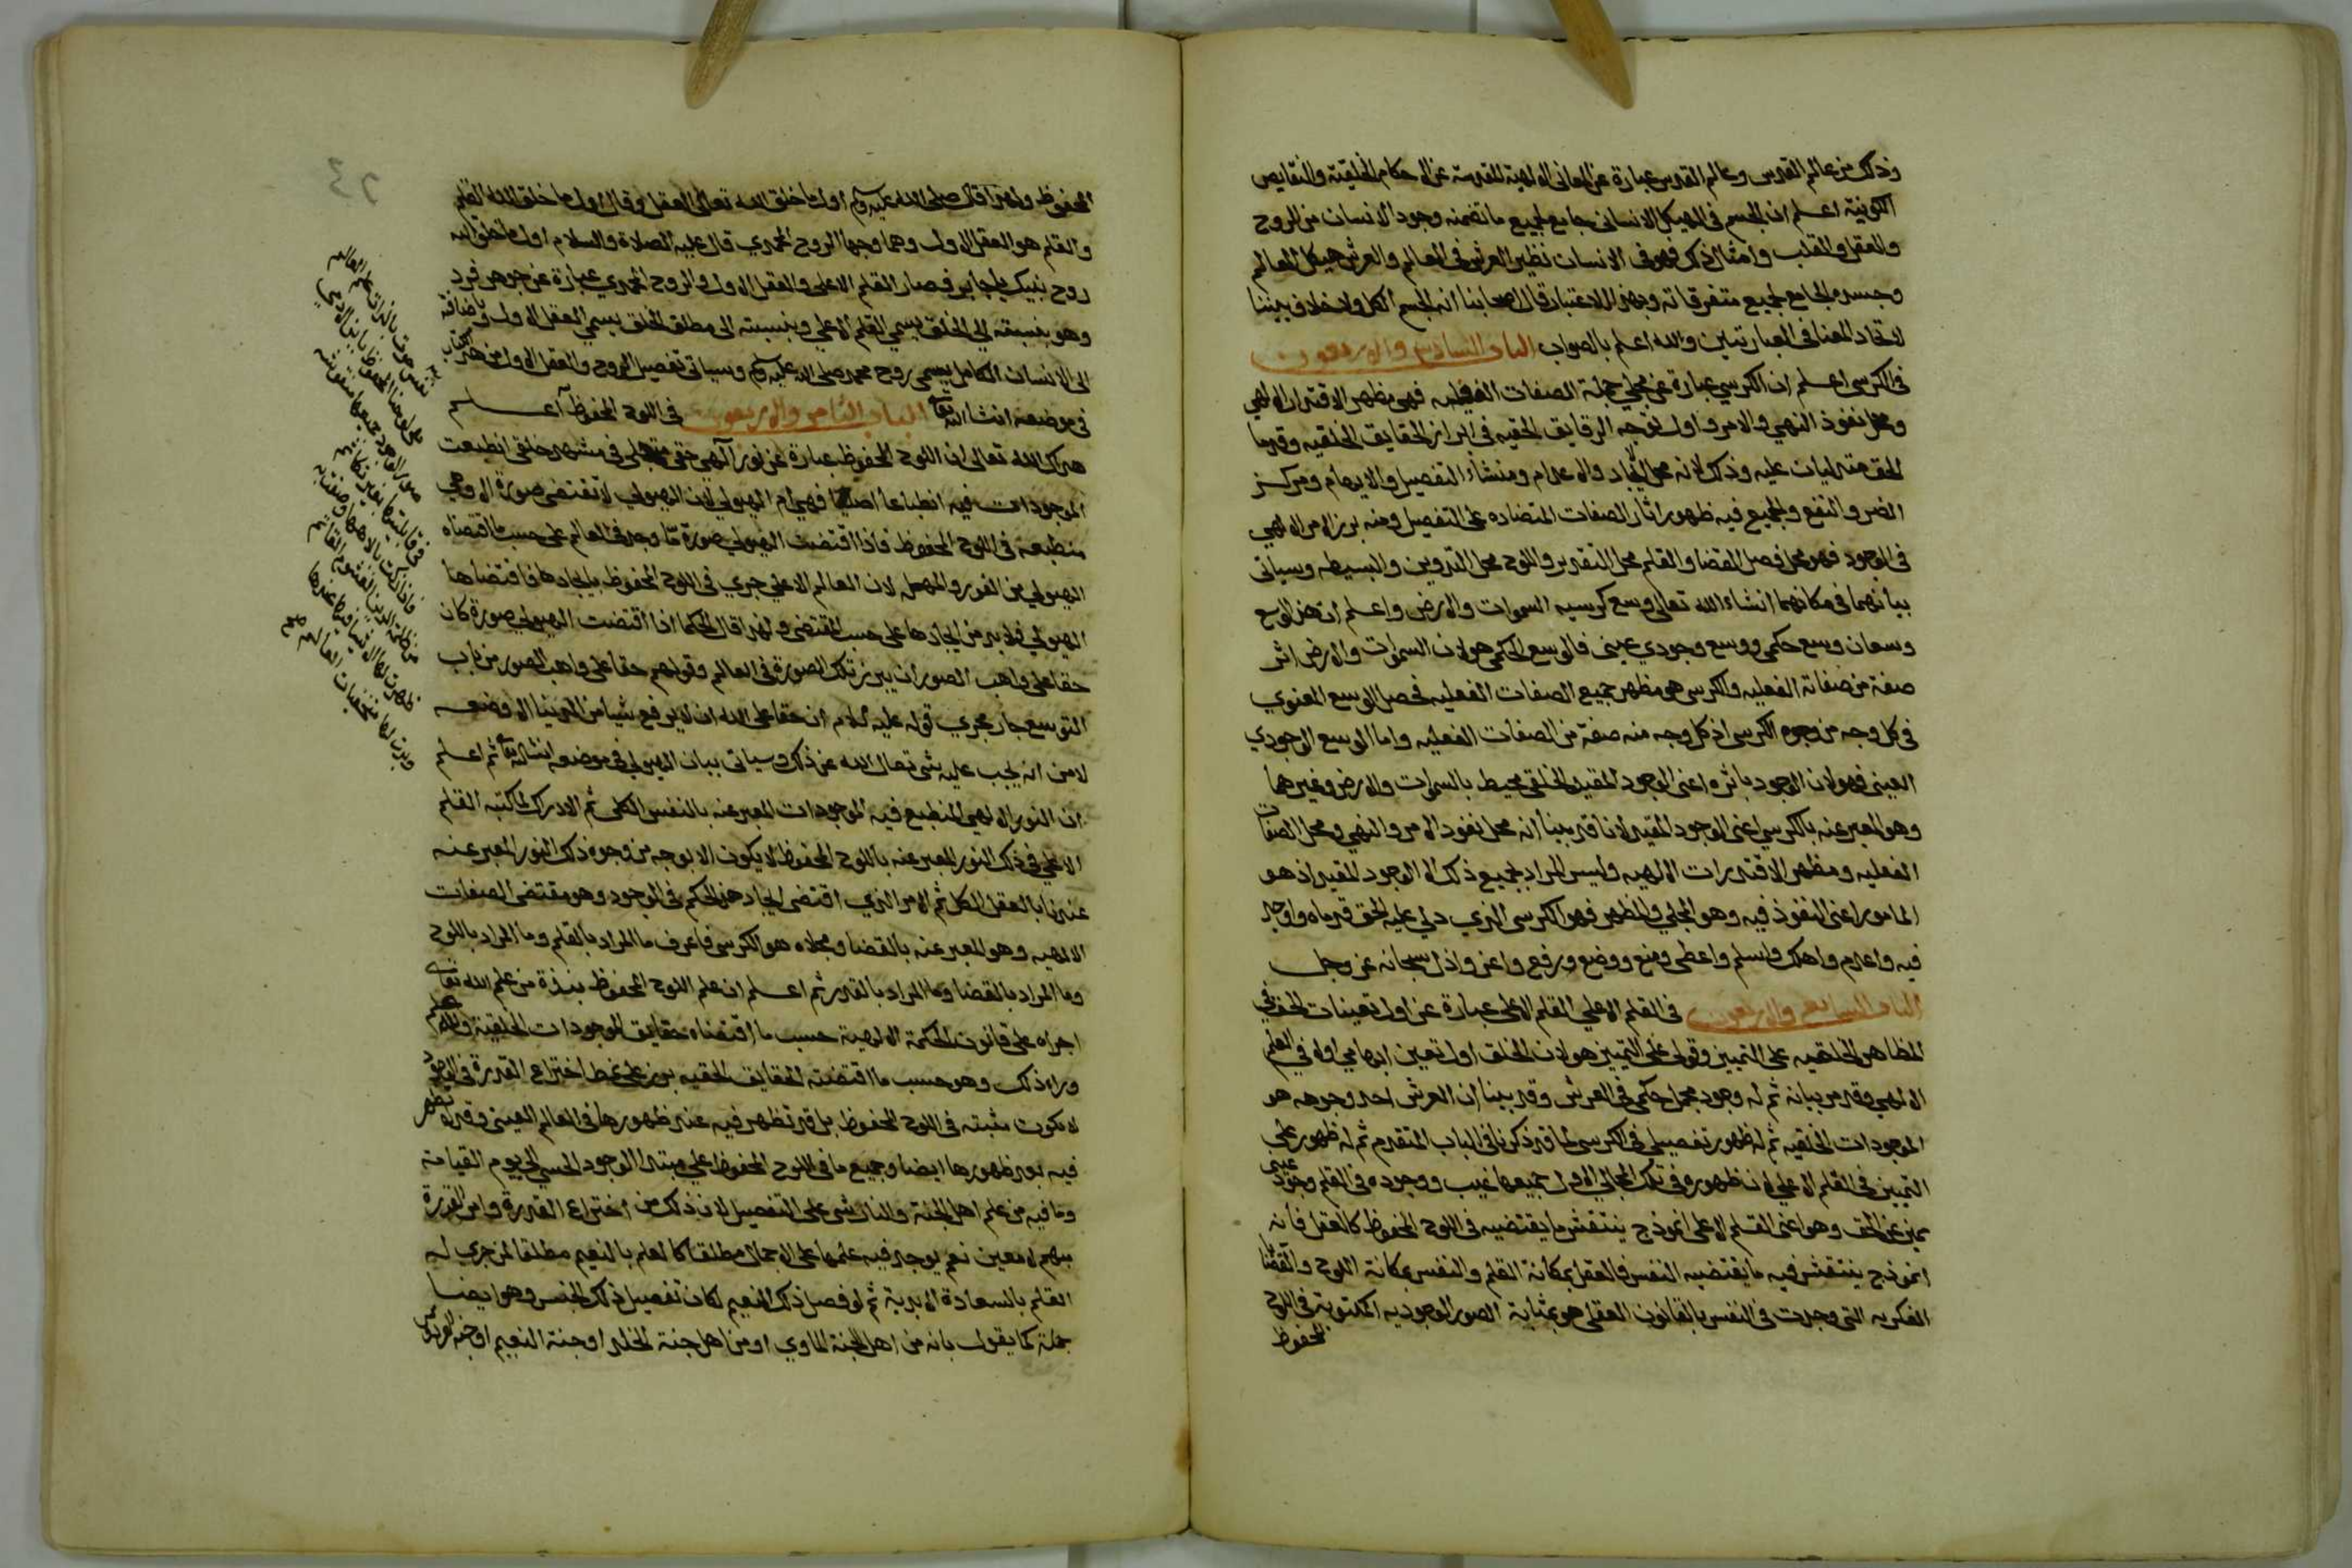 وذلك من عالم القدس وعالم القدس عبارة عن المعاني الالهية المقدسة عن الاحكام الخلقية والنقايص
الكونية اعلم ان الجسم في الهيكل الانساني جامع لجميع ما تضمنه وجود الانسان من الروح
والعقل والقلب وامثال ذلك فهو في الانسان نظير العرش في العالم والعرش هيكل العالم
وجسده الجامع لجميع متفرقاته وبهذا الاعتبار قال اصحابنا انه الجسم الكل ولا خلاف بيننا
لاتحاد المعنا في العبارتين والله اعلم بالصواب الباب السادس والاربعون
في الكرسي اعلم ان الكرسي عبارة عن تجلي جملة الصفات الفعليه فهي مظهر الاقتدار الالهي
ومحل نفوذ النهي والامر واول توجه الرقايق الحقيه في ابراز الحقايق الخلقيه وقدما
الحق متدليات عليه وذلك لانه محل الايجاد والاعدام ومنشاء التفصيل والابهام ومركز
الضر والنفع والجمع فيه ظهور اثار الصفات المتضاده على التفصيل ومنه برز الامر الالهي
في الوجود فهو محل فصل القضا والقلم محل التقدير واللوح محل التدوين والبسيطه وسياتى
بيانهما في مكانهما انشاء الله تعالى وسع كرسيه السموات والارض واعلم ان هذا الوسع
وسعان وسع حكمي ووسع وجودي عيني فالوسع الحكمي هو لان السموات والارض اثر
صفة من صفاته الفعليه والكرسي هو مظهر جميع الصفات الفعليه فحصل الوسع المعنوي
في كل وجه من وجوه الكرسي اذ كل وجه منه صفة من الصفات الفعليه واما الوسع الوجودي
العيني فهو لان الوجود باثره اعنى الوجود المقيد الخلقي محيط بالسموات والارض وغيرهما
وهو المعبر عنه بالكرسي اعنى الوجود المقيد لانا قد بينا انه محل نفوذ الامر والنهي ومحل الصفات
الفعليه ومظهر الاقتدارات الالهيه وليس المراد بجميع ذلك الا الوجود المقيد اذ هو
المامور اعنى النفوذ فيه وهو المجلي والمظهر فهو الكرسي الذي دلي عليه الحق قدماه واوجد
فيه واعدم واهلك واسلم واعطى ومنع ووضع ورفع واعز واذل سبحانه عز وجل
الباب السابع والاربعون في القلم الاعلى القلم الاعلى عبارة عن اول تعينات الحق في
المظاهر الخلقيه على التمييز وقولى على التمييز هو لان الخلق اول تعين ابهامي اوله في العلم
الالهي وقد مر بيانه ثم له وجود مجمل حكمي في العرش وقد بينا ان العرش احد وجوهه هو
الموجودات الخلقيه ثم له ظهور تفصيلي في الكرسي لما قد ذكرنا في الباب المتقدم ثم له ظهور على
التمييز في القلم الاعلي لان ظهوره في تلك المجالي الاول جميعها غيب ووجوده في القلم وجود عيني
مميز عن الحق وهو اعنى القلم الاعلى انموذج ينتقش ما يقتضيه في اللوح المحفوظ كالعقل فانه
انموذج ينتقش فيه ما يقتضيه النفس فالعقل بمكانة القلم والنفس بمكانة اللوح والقضايا
الفكريه التي وجدت في النفس بالقانون العقلي هو بمثابة الصور الوجوديه المكتوبة في اللوح
المحفوظ
المحفوظ ولهذا قال صلى الله عليه وسلم اول ما خلق الله تعالى العقل وقال اول ما خلق الله القلم
والقلم هو العقل الاول وهما وجها الروح المحمدي قال عليه الصلاة والسلام اول ما خلق الله
روح نبيك يا جابر فصار القلم الاعلى والعقل الاول والروح المحمدي عبارة عن جوهر فرد
وهو بنسبته الي الخلق يسمي القلم الاعلي وبنسبته الى مطلق الخلق يسمي العقل الاول وباضافته
الى الانسان الكامل يسمى روح محمد صلى الله عليه وسلم وسياتى تفصيل الروح والعقل الاول من هذا الكتاب
في موضعه انشا الله تعالى الباب الثامن والاربعون في اللوح المحفوظ اعلم
هداك الله تعالى ان اللوح المحفوظ عبارة عن نور آلهي حقي متجلي في مشهد خلقي انطبعت
الموجودات فيه انطباعا اصليا فهي ام الهيولي لان الهيولي لا تقتضي صورة الا وهي
منطبعة في اللوح المحفوظ فاذا اقتضت الهيولى صورة مّا وجد في العالم على حسب ما اقتضاه
الهيولي من الفور والمهل لان العالم الاعلى جري في اللوح المحفوظ بايجادها فاقتضاها
الهيولي فلا بد من ايجادها على حسب المقتضى ولهذا قال الحكما اذا اقتضت الهيولي صورة كان
حقا على واهب الصور ان يبرز تلك الصورة في العالم وقولهم حقا على واهب الصور من باب
التوسع جار مجري قوله عليه السلام ان حقا على الله ان لا يرفع شيا من الدنيا الا وضعه
لا من انه يجب عليه شي تعالى الله عن ذلك وسياتى بيان الهيولي في موضعه انشالله تعالى ثم اعلم
ان النور الالهي المنطبع فيه الموجودات المعبر عنه بالنفس الكلي ثم الادراك لما كتبه القلم
الاعلي في ذلك النور المعبر عنه باللوح المحفوظ لا يكون الا بوجه من وجوه ذلك النور المعبر عنه
عندنا بالعقل الكل ثم الامر الذي اقتضى ايجاد هذا الحكم في الوجود وهو مقتضى الصفات
الالهيه وهو المعبر عنه بالقضا ومجلاه هو الكرسي فاعرف ما المراد بالقلم وما المراد باللوح
وما المراد بالقضا وما المراد بالقدر ثم اعلم ان علم اللوح المحفوظ نبذة من علم الله تعالى
اجراه على قانون الحكمة الالهية حسب ما اقتضاه حقايق الموجودات الخلقية ولله علم
وراء ذلك وهو حسب ما اقتضته الحقايق الحقيه برز على نمط اختراع القدرة في الوجود
لا يكون مثبته في اللوح المحفوظ بل قد تظهر فيه عند ظهورها في العالم العيني وقد لا تظهر
فيه بعد ظهورها ايضا وجميع ما في اللوح المحفوظ علي مبتدا الوجود الحسي الي يوم القيامة
وما فيه من علم اهل الجنة والنار شي على التفصيل لان ذلك من اختراع القدرة وامر القدرة
مبهم لا معين نعم يوجد فيه علمها على الاجمال مطلقا كالعلم بالنعيم مطلقا لمن جري له
القلم بالسعادة الابدية ثم لو فصل ذلك النعيم لكان تفصيل ذلك الجنس وهو ايضا
جملة كما يقول بانه من اهل الجنة الماوي او من اهل جنة الخلد او جنة النعيم او جنة الفردوس